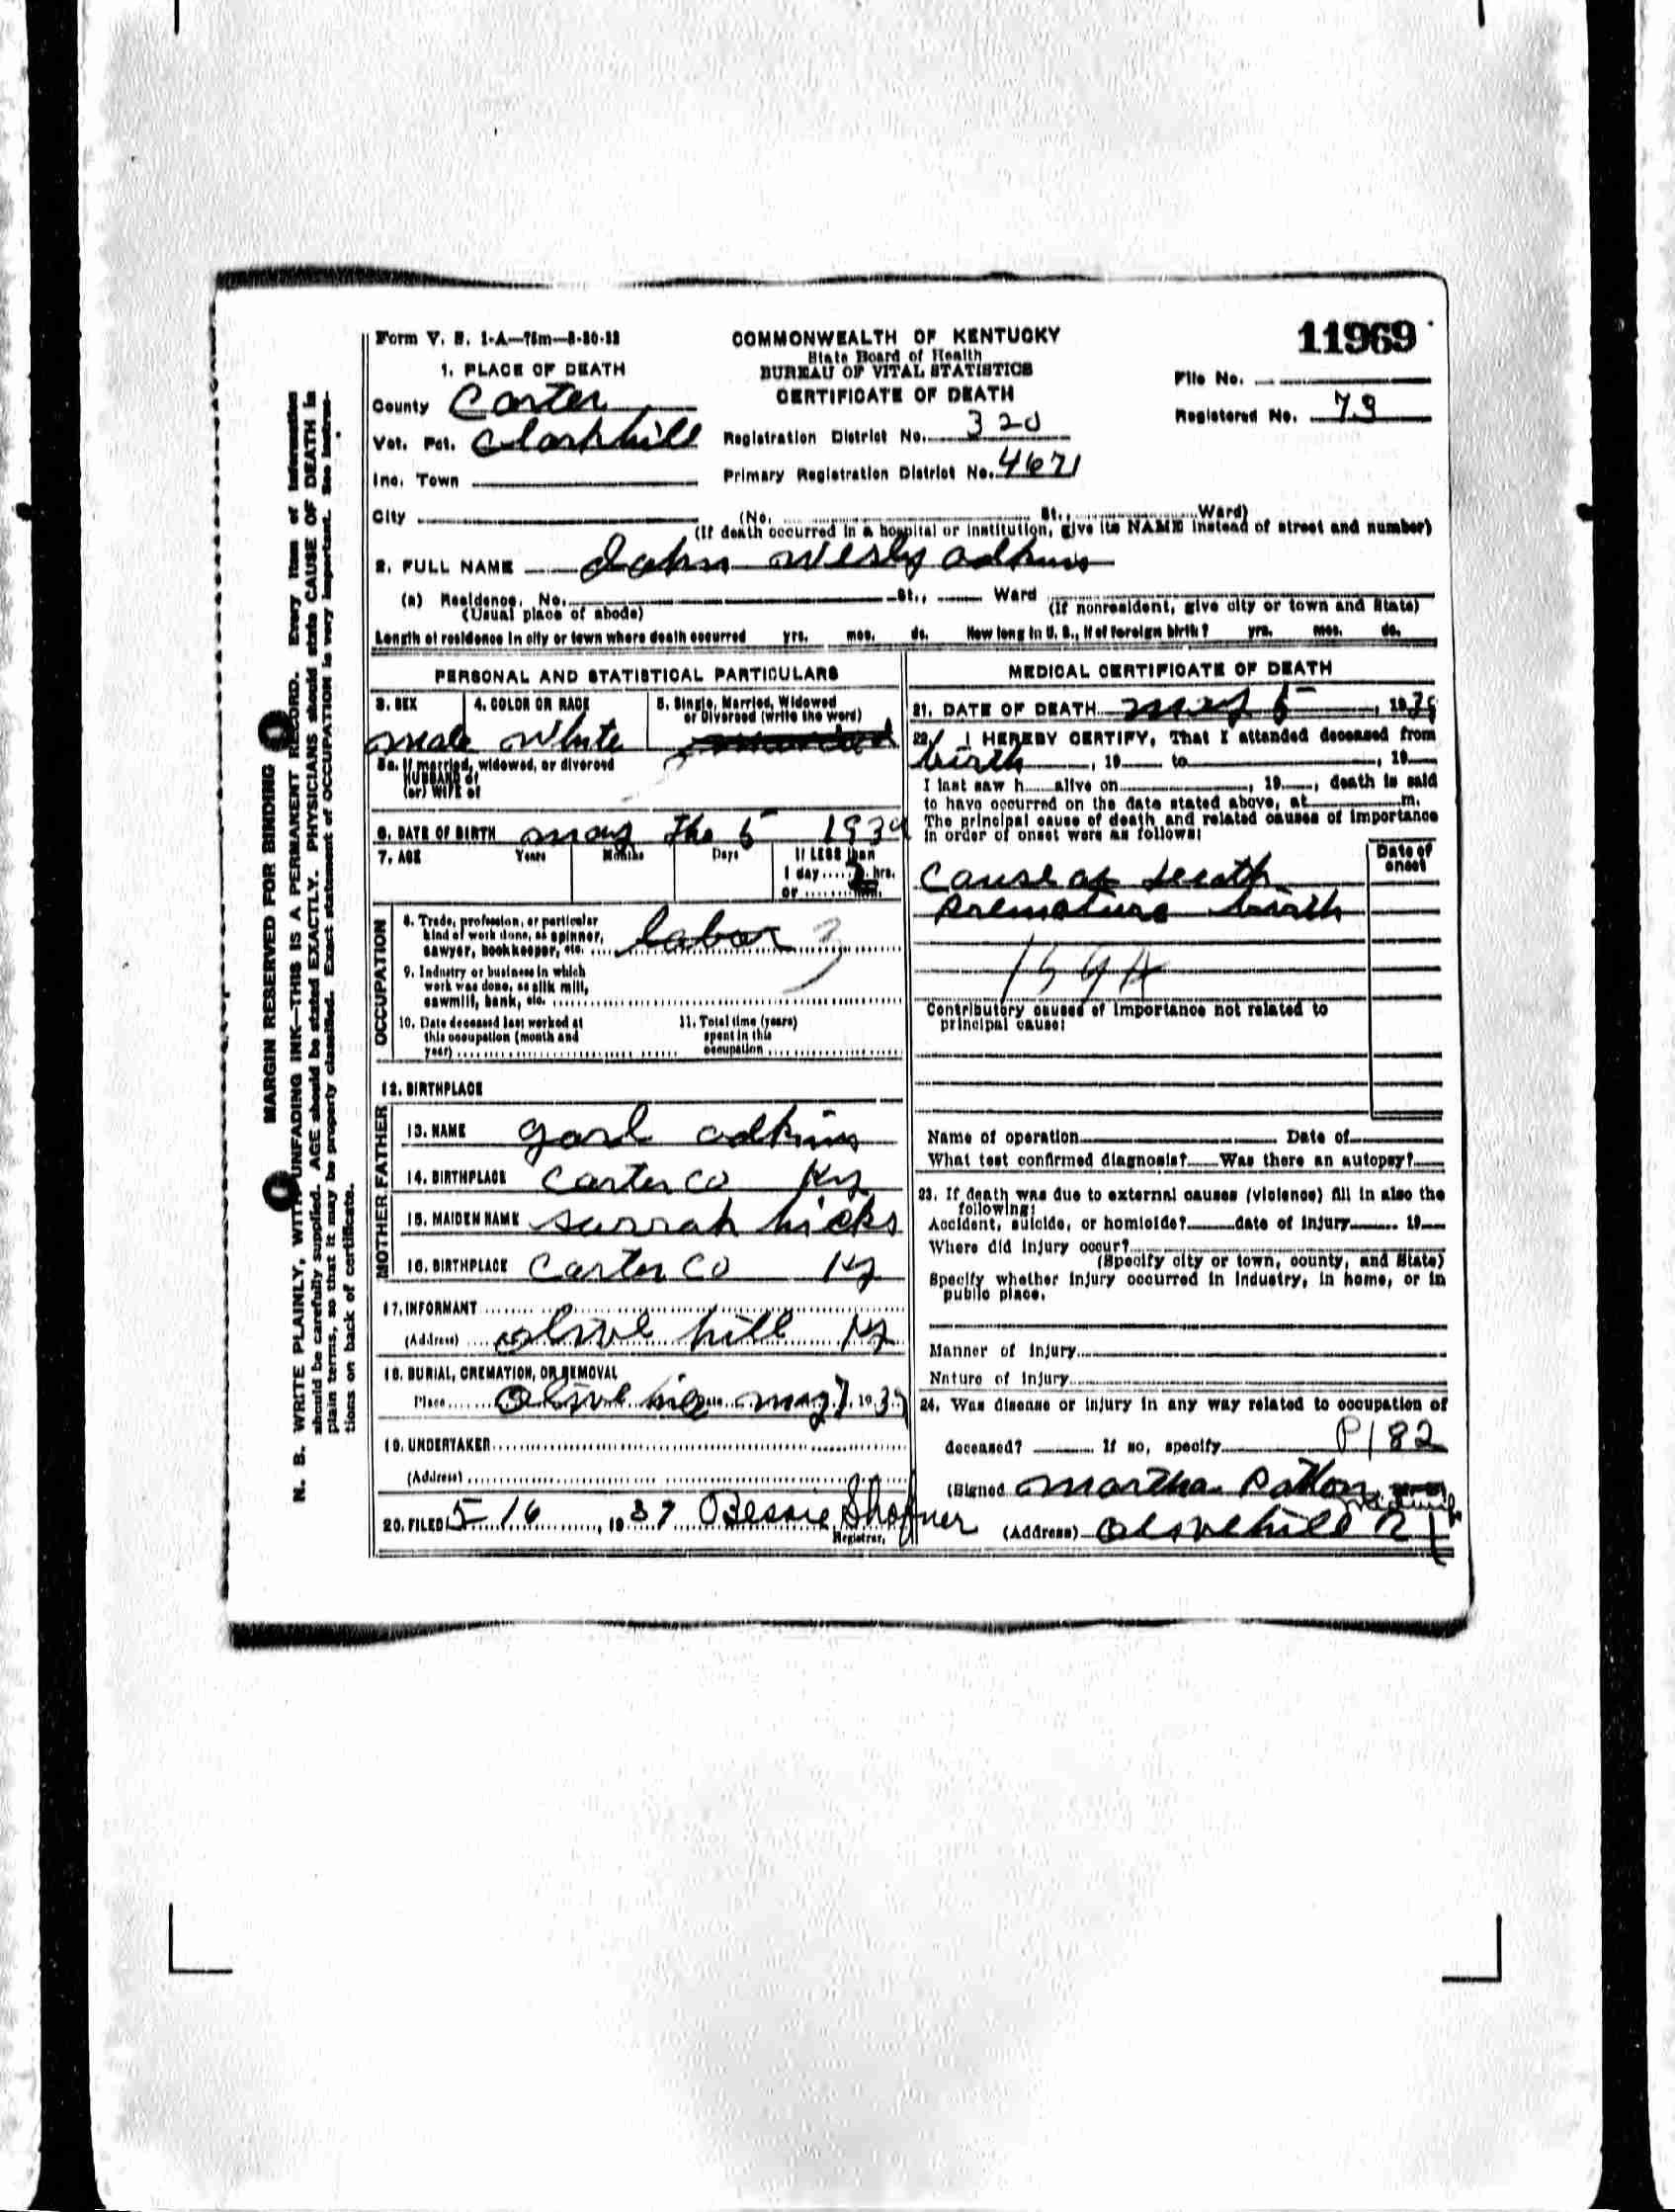 Form V. S. 1-A—75m—8-30-32
COMMONWEALTH OF KENTUCKY
State Board of Health
BUREAU OF VITAL STATISTICS
CERTIFICATE OF DEATH
11969
File No.
Registered No. 79
1. PLACE OF DEATH
County Carter
Vot. Pct. Clarkhill
Registration District No. 320
Inc. Town
Primary Registration District No. 4671
City (No. St., Ward)
(If death occurred in a hospital or institution, give its NAME instead of street and number)
2. FULL NAME John Wesly adkins
(a) Residence. No. St., Ward
(Usual place of abode) (If nonresident, give city or town and State)
Length of residence in city or town where death occurred yrs. mos. ds. How long in U. S., if of foreign birth? yrs. mos. ds.
PERSONAL AND STATISTICAL PARTICULARS
3. SEX 4. COLOR OR RACE 5. Single, Married, Widowed
or Divorced (write the word)
male white
5a. If married, widowed, or divorced
HUSBAND of
(or) WIFE of
6. DATE OF BIRTH may the 5 1939
7. AGE Years Months Days If LESS than
1 day hrs.
or min.
OCCUPATION
8. Trade, profession, or particular
kind of work done, as spinner,
sawyer, bookkeeper, etc. labor
9. Industry or business in which
work was done, as silk mill,
sawmill, bank, etc.
10. Date deceased last worked at
this occupation (month and
year)
11. Total time (years)
spent in this
occupation
12. BIRTHPLACE
FATHER
13. NAME garl adkins
14. BIRTHPLACE Carter co Ky
MOTHER
15. MAIDEN NAME surrah hicks
16. BIRTHPLACE Carter co Ky
17. INFORMANT
(Address) olive hill Ky
18. BURIAL, CREMATION, OR REMOVAL
Place Olive hill Date may 7, 1939
19. UNDERTAKER
(Address)
20. FILED 5-16, 1939 Bessie Shaffner
Registrar.
MEDICAL CERTIFICATE OF DEATH
21. DATE OF DEATH may 5, 1939
22. I HEREBY CERTIFY, That I attended deceased from
birth, 19 to , 19
I last saw h alive on , 19 , death is said
to have occurred on the date stated above, at m.
The principal cause of death and related causes of importance
in order of onset were as follows:
Date of
onset
Cause of death
premature birth
159A
Contributory causes of importance not related to
principal cause:
Name of operation Date of
What test confirmed diagnosis? Was there an autopsy?
23. If death was due to external causes (violence) fill in also the
following:
Accident, suicide, or homicide? date of injury 19
Where did injury occur?
(Specify city or town, county, and State)
Specify whether injury occurred in industry, in home, or in
public place.
Manner of injury
Nature of injury
24. Was disease or injury in any way related to occupation of
deceased? If so, specify P182
(Signed martha Patton, midwife
(Address) Olivehill
MARGIN RESERVED FOR BINDING
N. B. WRITE PLAINLY, WITH UNFADING INK—THIS IS A PERMANENT RECORD. Every item of information
should be carefully supplied. AGE should be stated EXACTLY. PHYSICIANS should state CAUSE OF DEATH in
plain terms, so that it may be properly classified. Exact statement of OCCUPATION is very important. See instruc-
tions on back of certificate.